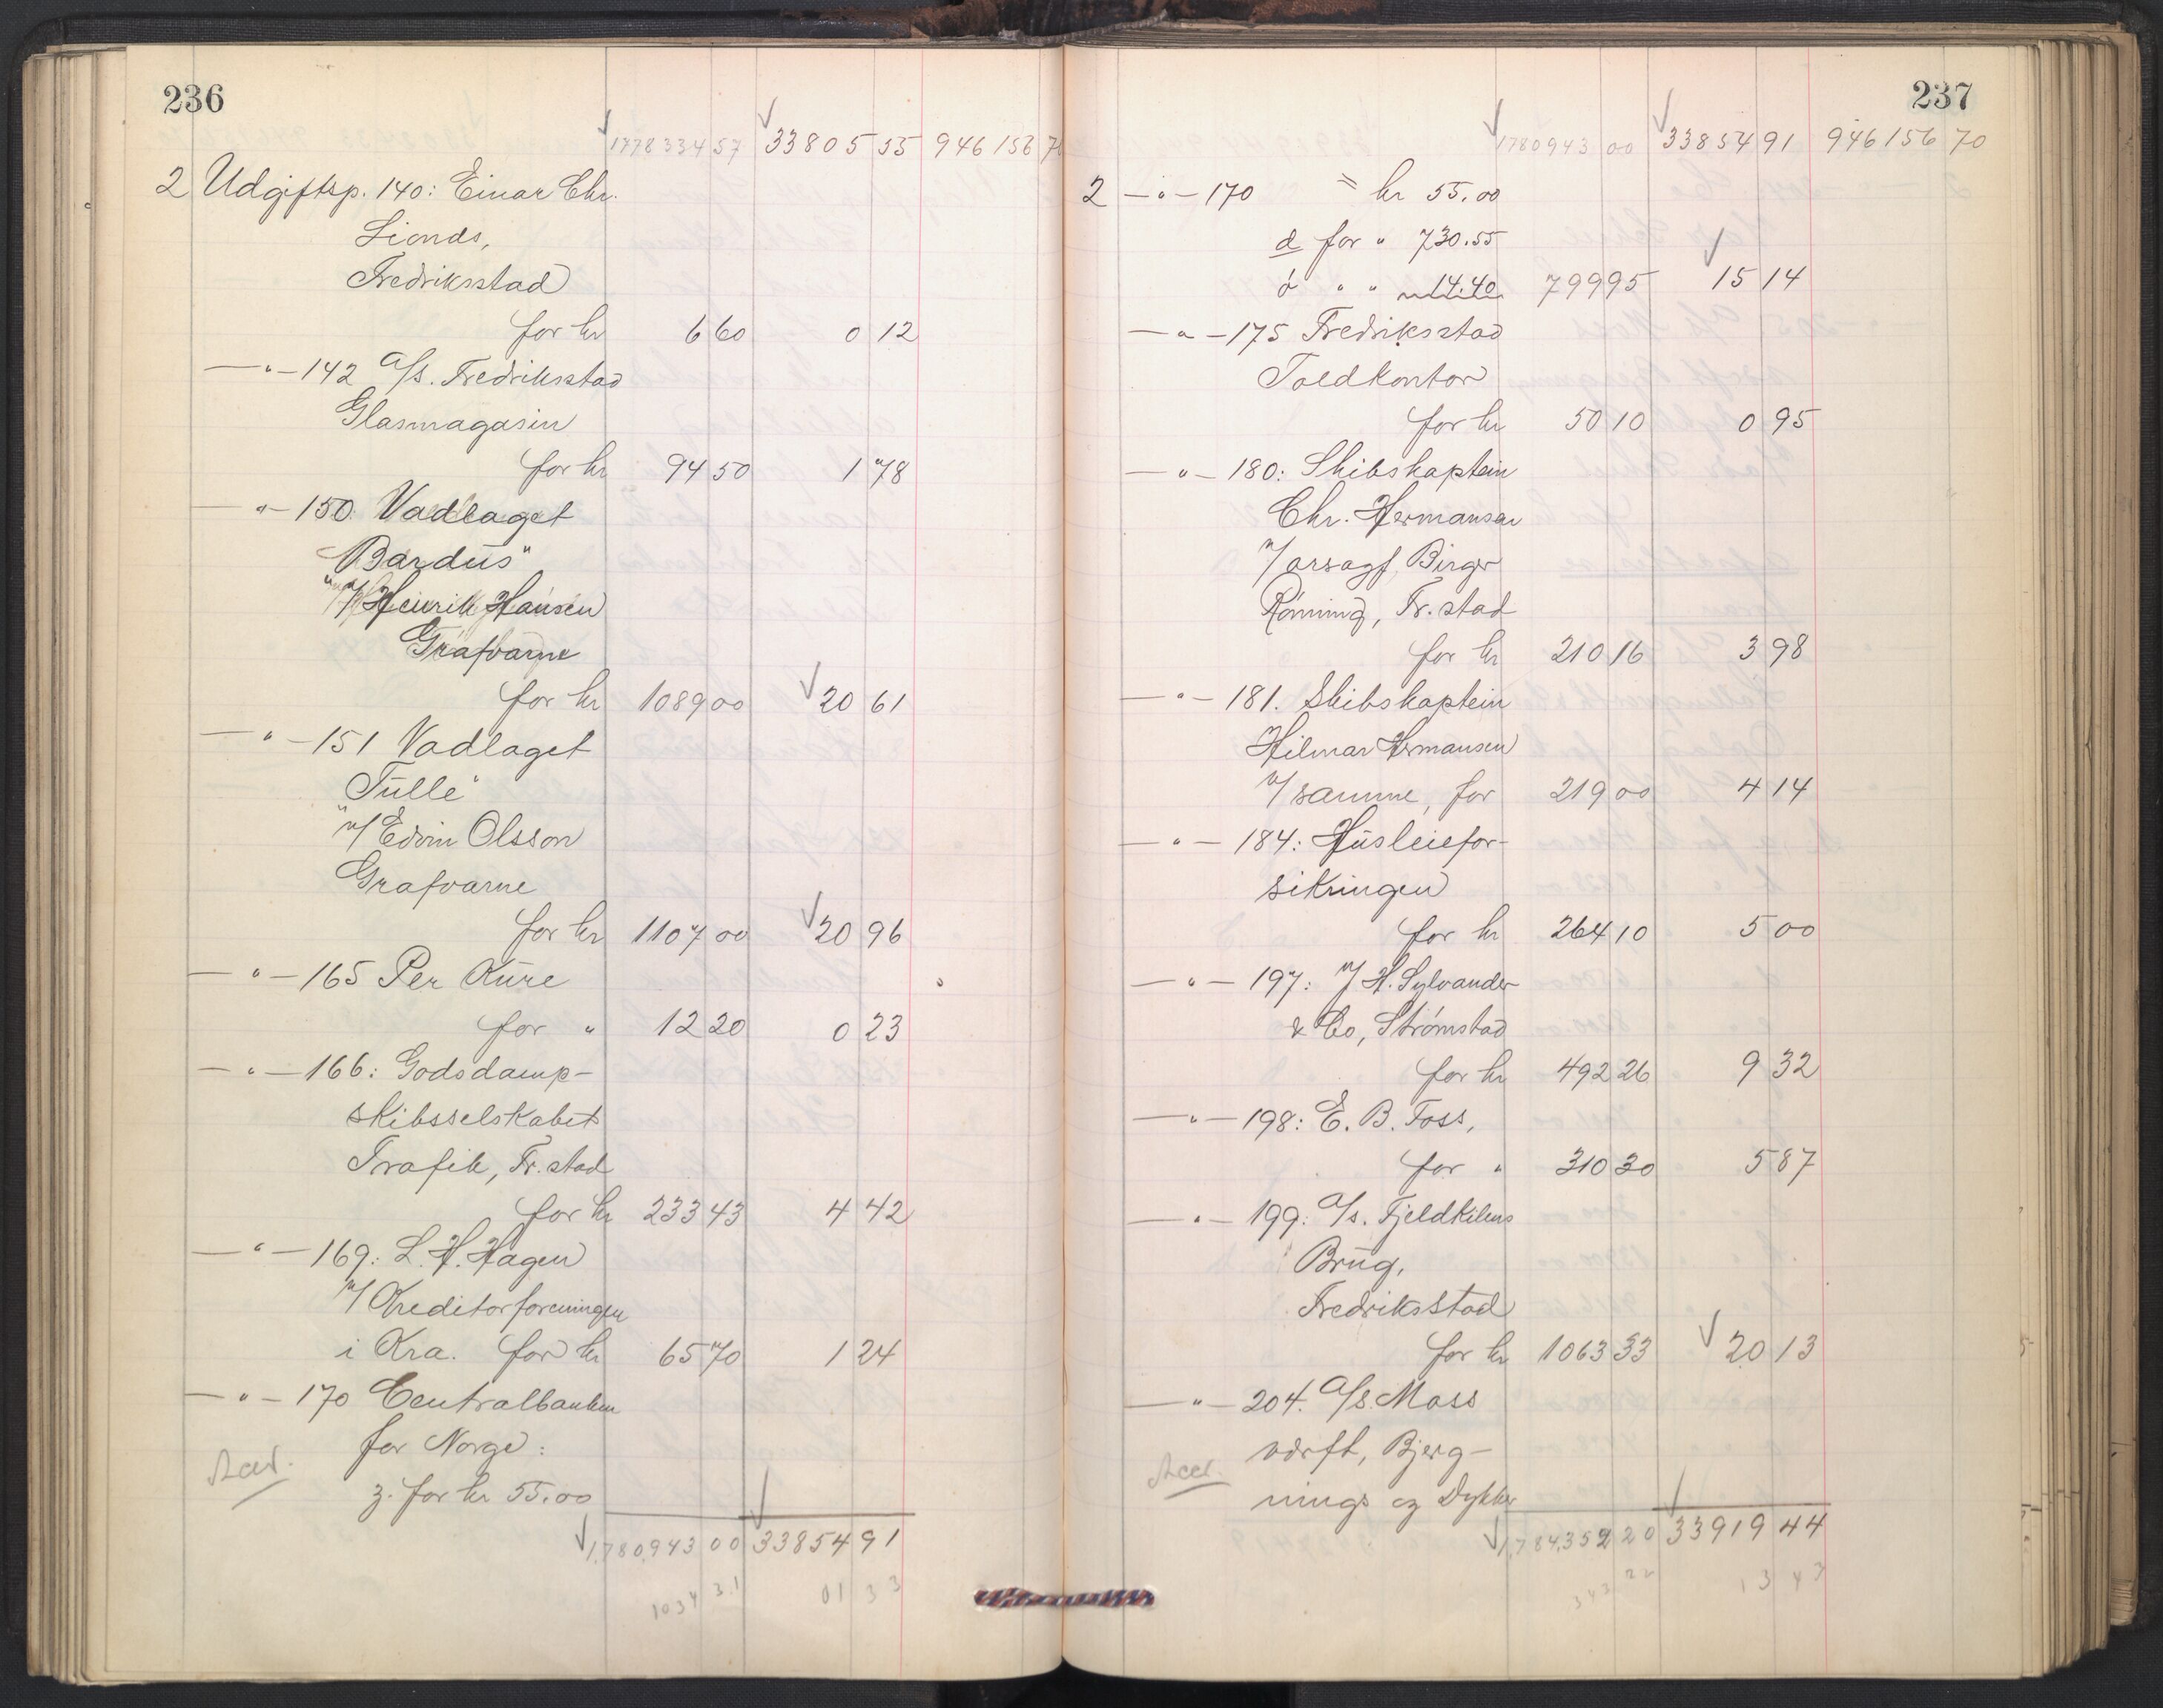 236
1778334 57 33805 55 946156 70
2 Udgiftsp. 140: Einar Chr.
Lionds,
Fredriksstad
for kr 6 60 0 12
—"—142 A/s. Fredriksstad
Glasmagasin
for kr 94 50 1 78
—"—150 Vadlaget
"Bardus"
v/ Henrik Hansen
Gräfvarne
for kr 1089 00 20 61
—"—151 Vadlaget
"Tülle"
v/ Edvin Olsson
Grafvarne
for kr 1107 00 20 96
—"—165 Per Kure
for " 12 20 0 23
—"—166: Godsdamp-
skibsselskabet
Trafik, Fr.stad
for kr 233 43 4 42
—"—169: L. H. Hagen
v/ Kreditorforeningen
i Kra. for kr 65 70 1 24
—"—170 Centralbanken
for Norge:
z. for kr 55.00
1,780,943 00 33854 91
1034 31 01 33
237
1780943 00 33854 91 946156 70
2 —"—170 = kr 55.00
d for " 730.55
ó " " 14.40 799 95 15 14
—"—175 Fredriksstad
Toldkontor
for kr 50 10 0 95
—"—180: Skibskaptein
Chr. Hermansen
v/ orsagf. Birger
Rönning, Fr.stad
for kr 210 16 3 98
—"—181. Skibskaptein
Hilmar Hermansen
v/ samme, for 219 00 4 14
—"—184: Husleiefor-
sikringen
for kr 264 10 5 00
—"—197: v/ H. Sylvander
& Co, Strömstad
for kr 492 26 9 32
—"—198: E. B. Foss,
for " 310 30 5 87
—"—199: A/s. Fjeldkilens
Brug,
Fredriksstad
for kr 1063 33 20 13
—"—204. A/s. Moss
værft, Bjerg-
nings og Dykker
1,784,352 20 33919 44
343 22 13 43